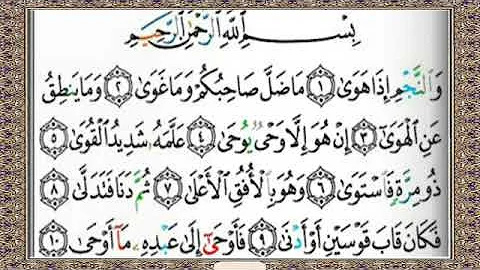 بِسْمِ اللَّهِ الرَّحْمَٰنِ الرَّحِيمِ
وَالنَّجْمِ إِذَا هَوَىٰ ١ مَا ضَلَّ صَاحِبُكُمْ وَمَا غَوَىٰ ٢ وَمَا يَنطِقُ
عَنِ الْهَوَىٰ ٣ إِنْ هُوَ إِلَّا وَحْيٌ يُوحَىٰ ٤ عَلَّمَهُ شَدِيدُ الْقُوَىٰ ٥
ذُو مِرَّةٍ فَاسْتَوَىٰ ٦ وَهُوَ بِالْأُفُقِ الْأَعْلَىٰ ٧ ثُمَّ دَنَا فَتَدَلَّىٰ ٨
فَكَانَ قَابَ قَوْسَيْنِ أَوْ أَدْنَىٰ ٩ فَأَوْحَىٰ إِلَىٰ عَبْدِهِ مَا أَوْحَىٰ ١٠